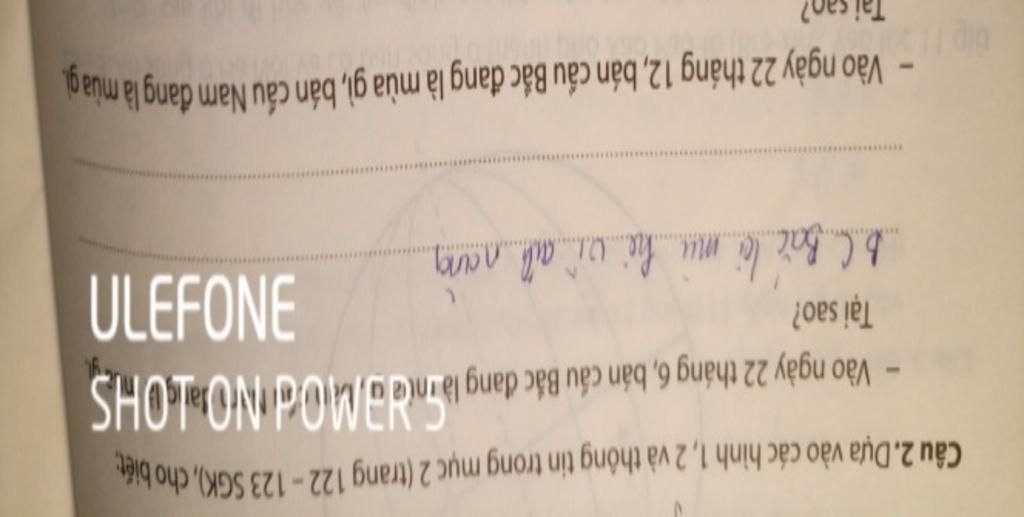 Câu 2. Dựa vào các hình 1, 2 và thông tin trong mục 2 (trang 122 – 123 SGK), cho biết:
– Vào ngày 22 tháng 6, bán cầu Bắc đang là mùa gì, bán cầu Nam đang là mùa gì.
Tại sao?
b C Bắc là mù hè vì ... nắng
– Vào ngày 22 tháng 12, bán cầu Bắc đang là mùa gì, bán cầu Nam đang là mùa gì.
Tại sao?
ULEFONE
SHOT ON POWER 5